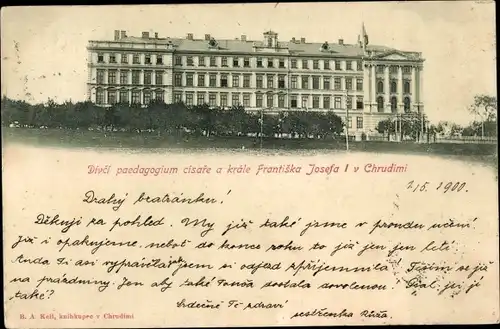 Dívčí paedagogium císaře a krále Františka Josefa I v Chrudimi
2/6. 1900.
Drahý bratránku!
Děkuji za pohled. My již také jsme v proudu učení,
již i opakujeme, neboť do konce roku to již jen jen letí.
Anda Ti asi vyprávěla jak jsem si odjezd zpříjemnila. Těším se již
na prázdniny. Jen aby také Tonča dostala dovolenou! Psal, jsi jí
také?
Srdečně Tě zdraví
sestřenka Růža.
B. A. Kail, knihkupec v Chrudimi